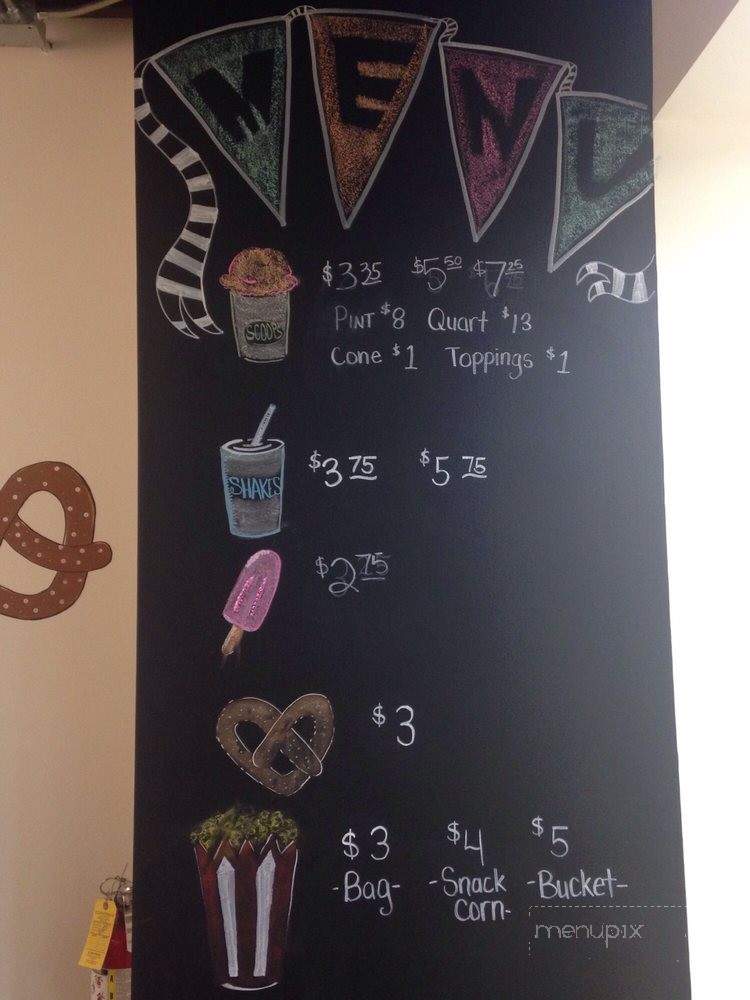 MENU
$3 35 $5 50 $7 25
SCOOPS
PINT $8 Quart $13
Cone $1 Toppings $1
$3 75 $5 75
SHAKES
$2 75
$3
$3 $4 $5
-Bag- -Snack Corn- -Bucket-
menupix